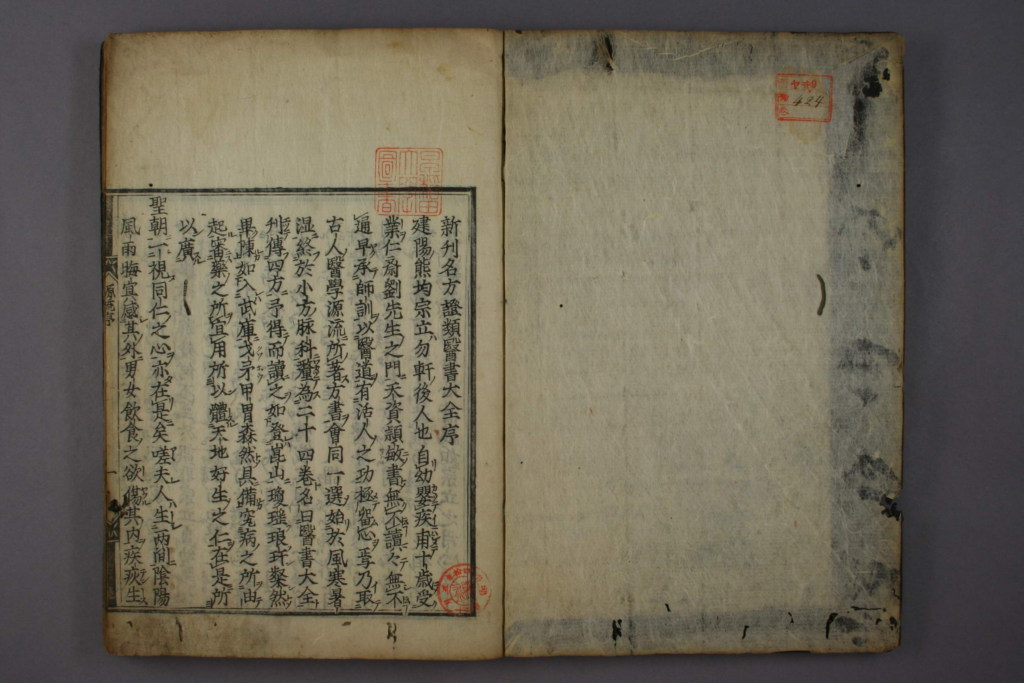 424
新刊名方證類醫書大全序
建陽熊均宗立勿軒後人也自幼嬰疾甫十歲受
業仁齋劉先生之門天資頴敏書無不讀々無不
通早承師訓以醫道有活人之功極留心焉乃取
古人醫學源流所著方書會同一選始於風寒暑
湿終於小方脉科釐為二十四卷名曰醫書大全
刋傳四方予得而讀之如登崑山瓊瑤琅玕粲然
畢陳如入武庫戈矛甲胄森然具備究病之所由
起審藥之所宜用所以體天地好生之仁在是所
以廣
聖朝一視同仁之心亦在是矣嗟夫人生兩間陰陽
風雨晦宜感其外男女飲食之欲傷其内疾疢生